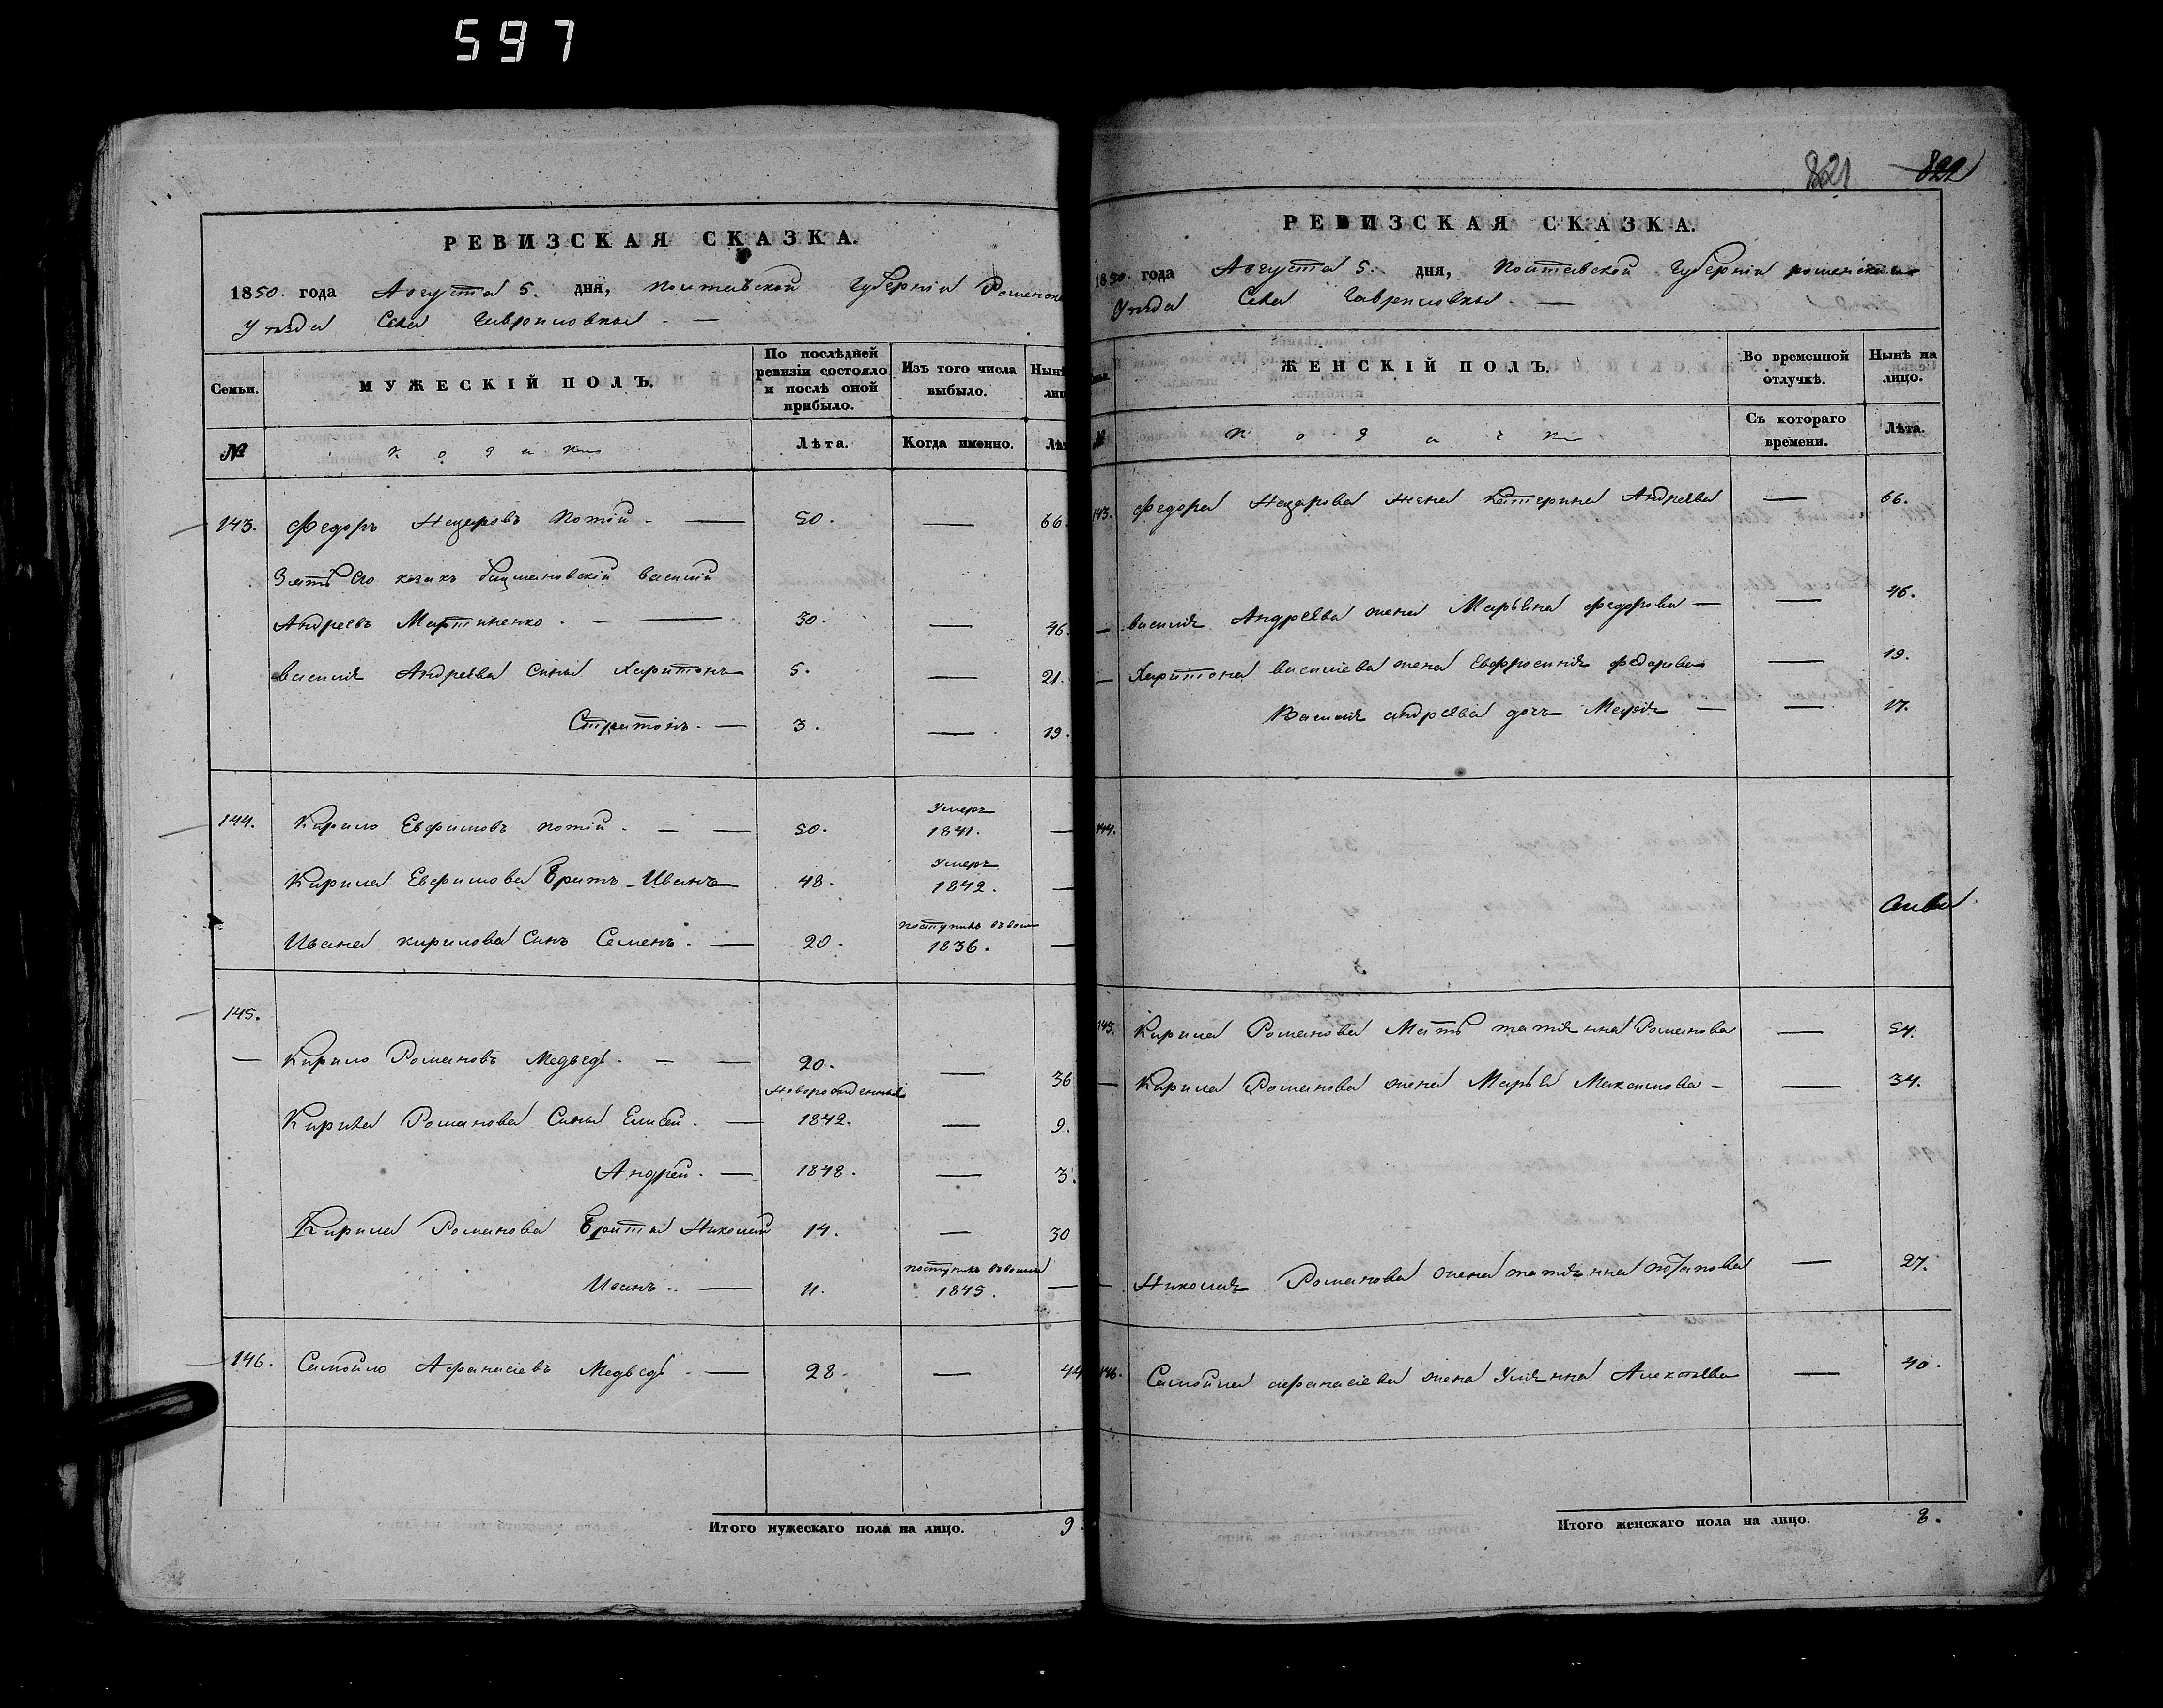 597
РЕВИЗСКАЯ СКАЗКА.
1850. года Августа 5. дня, Полтавской Губерніи Роменск
Уѣзда Села Гавриловки. —
Семьи.
МУЖЕСКІЙ ПОЛЪ.
По послѣдней ревизіи состояло и послѣ оной прибыло.
Изъ того числа выбыло.
Нынѣ лиц
№
Козаки
Лѣта.
Когда именно.
Лѣт
143. Федоръ Назаровъ Потій. — 50. — 66.
Зять его козакъ василій
Андреевъ Мартиненко. — 30. — 46.
Василія Андреева Сины Харитонъ 5. — 21.
Стратонъ. — 3. — 19.
144. Кирило Евфимовъ Потій. — — 50. Умеръ 1841. —
Кирила Евфимова Братъ Иванъ 48. Умеръ 1842. —
Ивана Кирилова Синъ Семенъ. — 20. поступилъ 1836. —
145.
— Кирило Романовъ Медведь. — — 20. — 36
Новорожденные
Кирила Романова Сины Елисей. — 1842. — 9.
Андрей. — 1848. — 3.
Кирила Романова Браты Николай 14. — 30
Иванъ. — 11. поступилъ 1845. —
146. Самойло Афанасіевъ Медведь. — 28. — 44
Итого мужескаго пола на лицо. 9.
821 822
РЕВИЗСКАЯ СКАЗКА.
1850. года Августа 5. дня, Полтавской Губерніи роменскаго
Уѣзда Села Гавриловки. —
мьи.
ЖЕНСКІЙ ПОЛЪ.
Во временной отлучкѣ.
Нынѣ на лицо.
№
Козачки
Съ котораго времени.
Лѣта.
143. Федора Назарова жена Катерина Андреева — 66.
— Василія Андреева жена Марѣина Федорова — — 46.
— Харитона Василіева жена Евфросинія Федорова — 19.
Василія андреева дочь Марія — — 17.
144.
145. Кирила Романова Мать татіянна Романова — 54.
— Кирила Романова жена Марѣя Максимова — — 34.
— Николая Романова жена татіянна потапова — 27.
146. Самойла афанасіева жена Уліянна Алексѣева — 40.
Итого женскаго пола на лицо. 8.